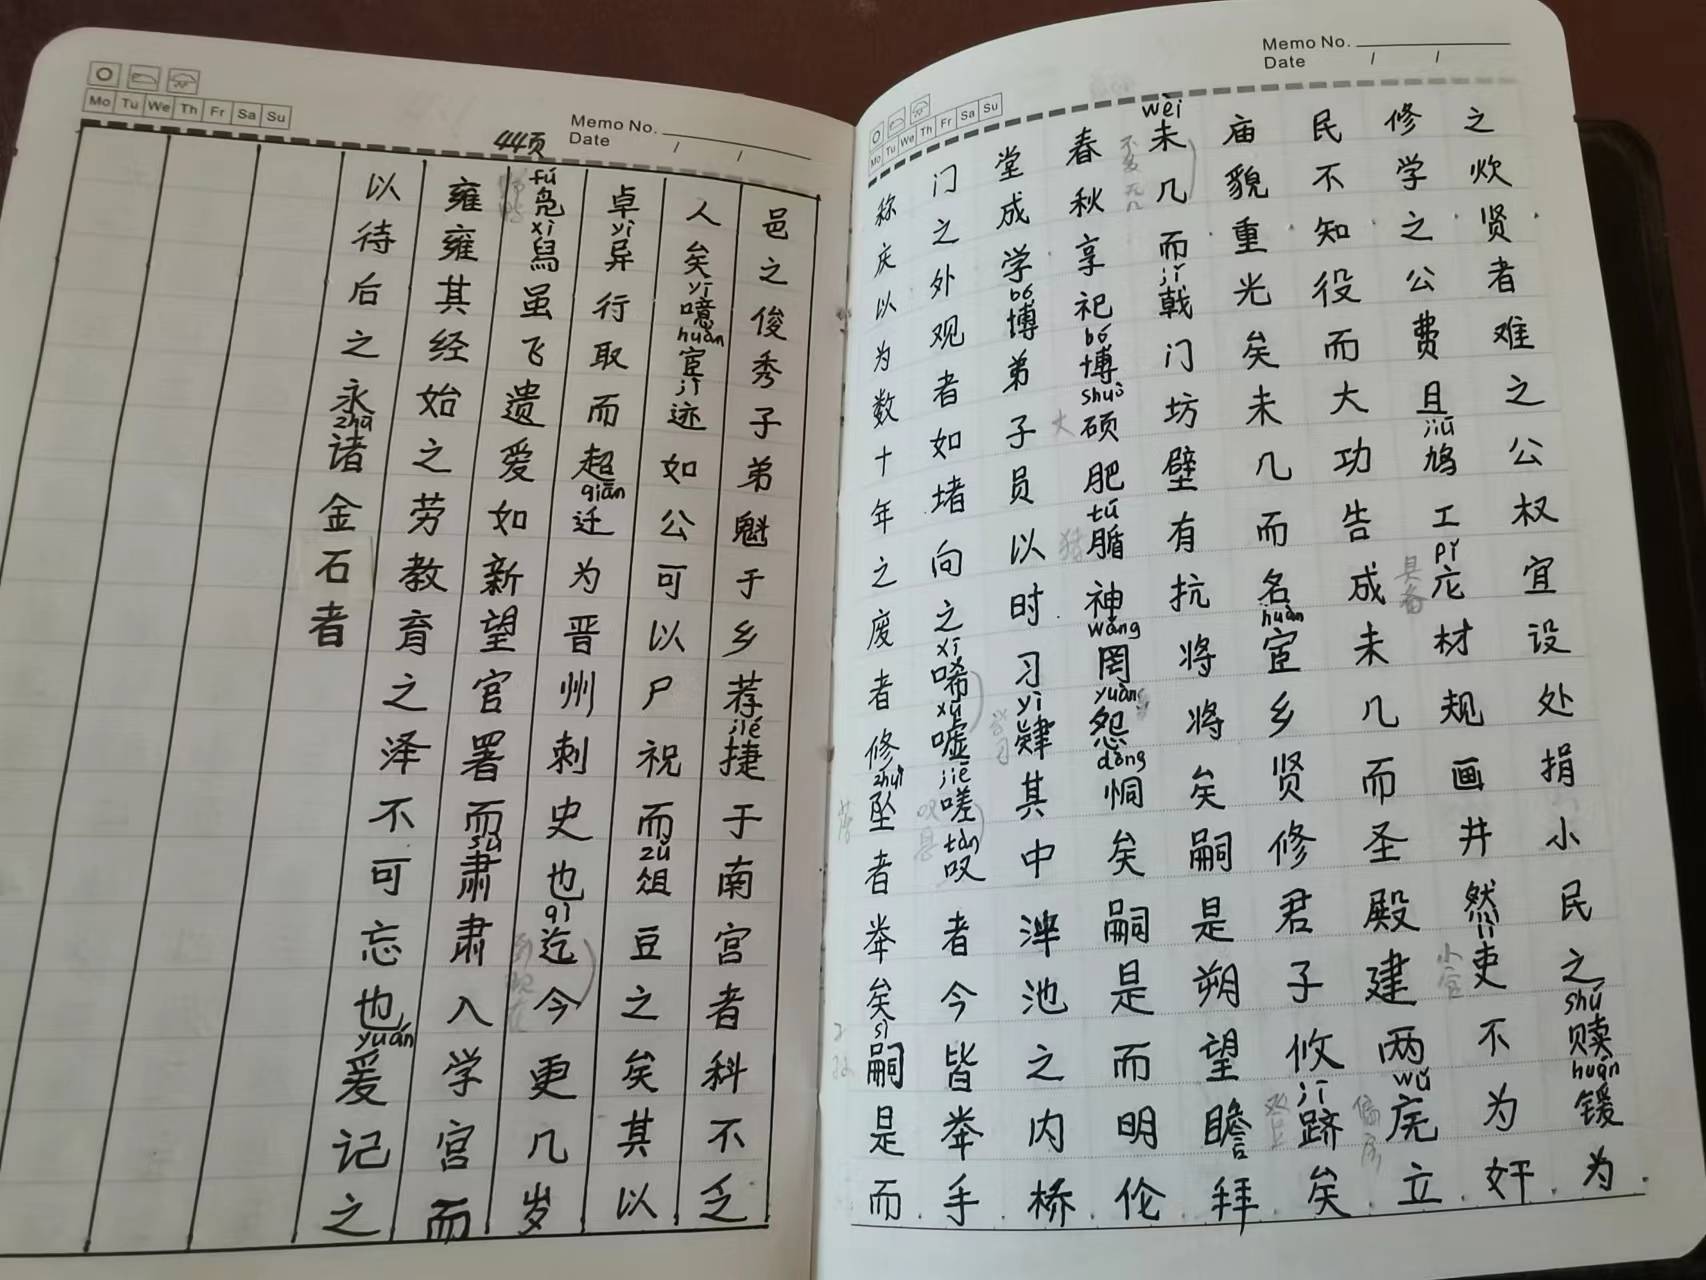 Memo No.
Date / /
Mo Tu We Th Fr Sa Su
之炊贤者难之公权宜设处捐小民之赎锾为
shú huán
修学之公费且鸠工庀材规画井然吏不为奸
jiū pǐ lì
民不知役而大功告成未几而圣殿建两庑立
wǔ
庙貌重光矣未几而名宦乡贤修君子攸跻矣
huàn jī
未几而戟门坊壁有抗将将矣嗣是朔望瞻拜
wèi jǐ
春秋享祀博硕肥腯神罔怨恫矣嗣是而明伦
bó shuò tú wǎng yuàn dòng
堂成学博弟子员以时习肄其中泮池之内桥
bó yì
门之外观者如堵向之唏嘘嗟叹者今皆举手
xī xū jiē tàn
称庆以为数十年之废者修坠者举矣嗣是而
zhuì sì
Memo No.
Date / /
Mo Tu We Th Fr Sa Su
44页
邑之俊秀子弟魁于乡荐捷于南宫者科不乏
jié
人矣噫宦迹如公可以尸祝而俎豆之矣其以
yī huàn jì zǔ
卓异行取而超迁为晋州刺史也迄今更几岁
yì qiān qì
凫舄虽飞遗爱如新望官署而肃肃入学宫而
fú xì sù
雍雍其经始之劳教育之泽不可忘也爰记之
yuán
以待后之永诸金石者
zhū